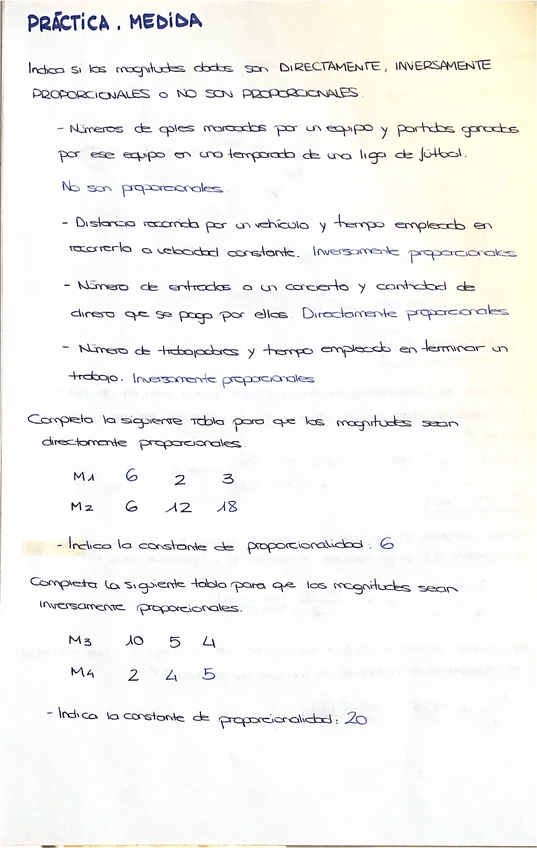 PRÁCTICA. MEDIDA
Indica si las magnitudes dadas son DIRECTAMENTE, INVERSAMENTE
PROPORCIONALES o NO SON PROPORCIONALES.
- Números de goles marcados por un equipo y partidos ganados
por ese equipo en una temporada de una liga de fútbol.
No son proporcionales.
- Distancia recorrida por un vehículo y tiempo empleado en
recorrerla a velocidad constante. Inversamente proporcionales
- Número de entradas a un concierto y cantidad de
dinero que se paga por ellas. Directamente proporcionales
- Número de trabajadores y tiempo empleado en terminar un
trabajo. Inversamente proporcionales
Completa la siguiente tabla para que las magnitudes sean
directamente proporcionales.
M1 6 2 3
M2 6 12 18
- Indica la constante de proporcionalidad: 6
Completa la siguiente tabla para que las magnitudes sean
inversamente proporcionales.
M3 10 5 4
M4 2 4 5
- Indica la constante de proporcionalidad: 20